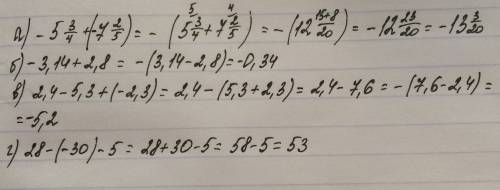 а) - 5 3/4 + (-7 2/5) = - (5 3/4 ⁵ + 7 2/5 ⁴) = - (12 15+8/20) = - 12 23/20 = - 13 3/20
б) - 3,14 + 2,8 = - (3,14 - 2,8) = - 0,34
в) 2,4 - 5,3 + (-2,3) = 2,4 - (5,3 + 2,3) = 2,4 - 7,6 = - (7,6 - 2,4) =
= - 5,2
г) 28 - (-30) - 5 = 28 + 30 - 5 = 58 - 5 = 53